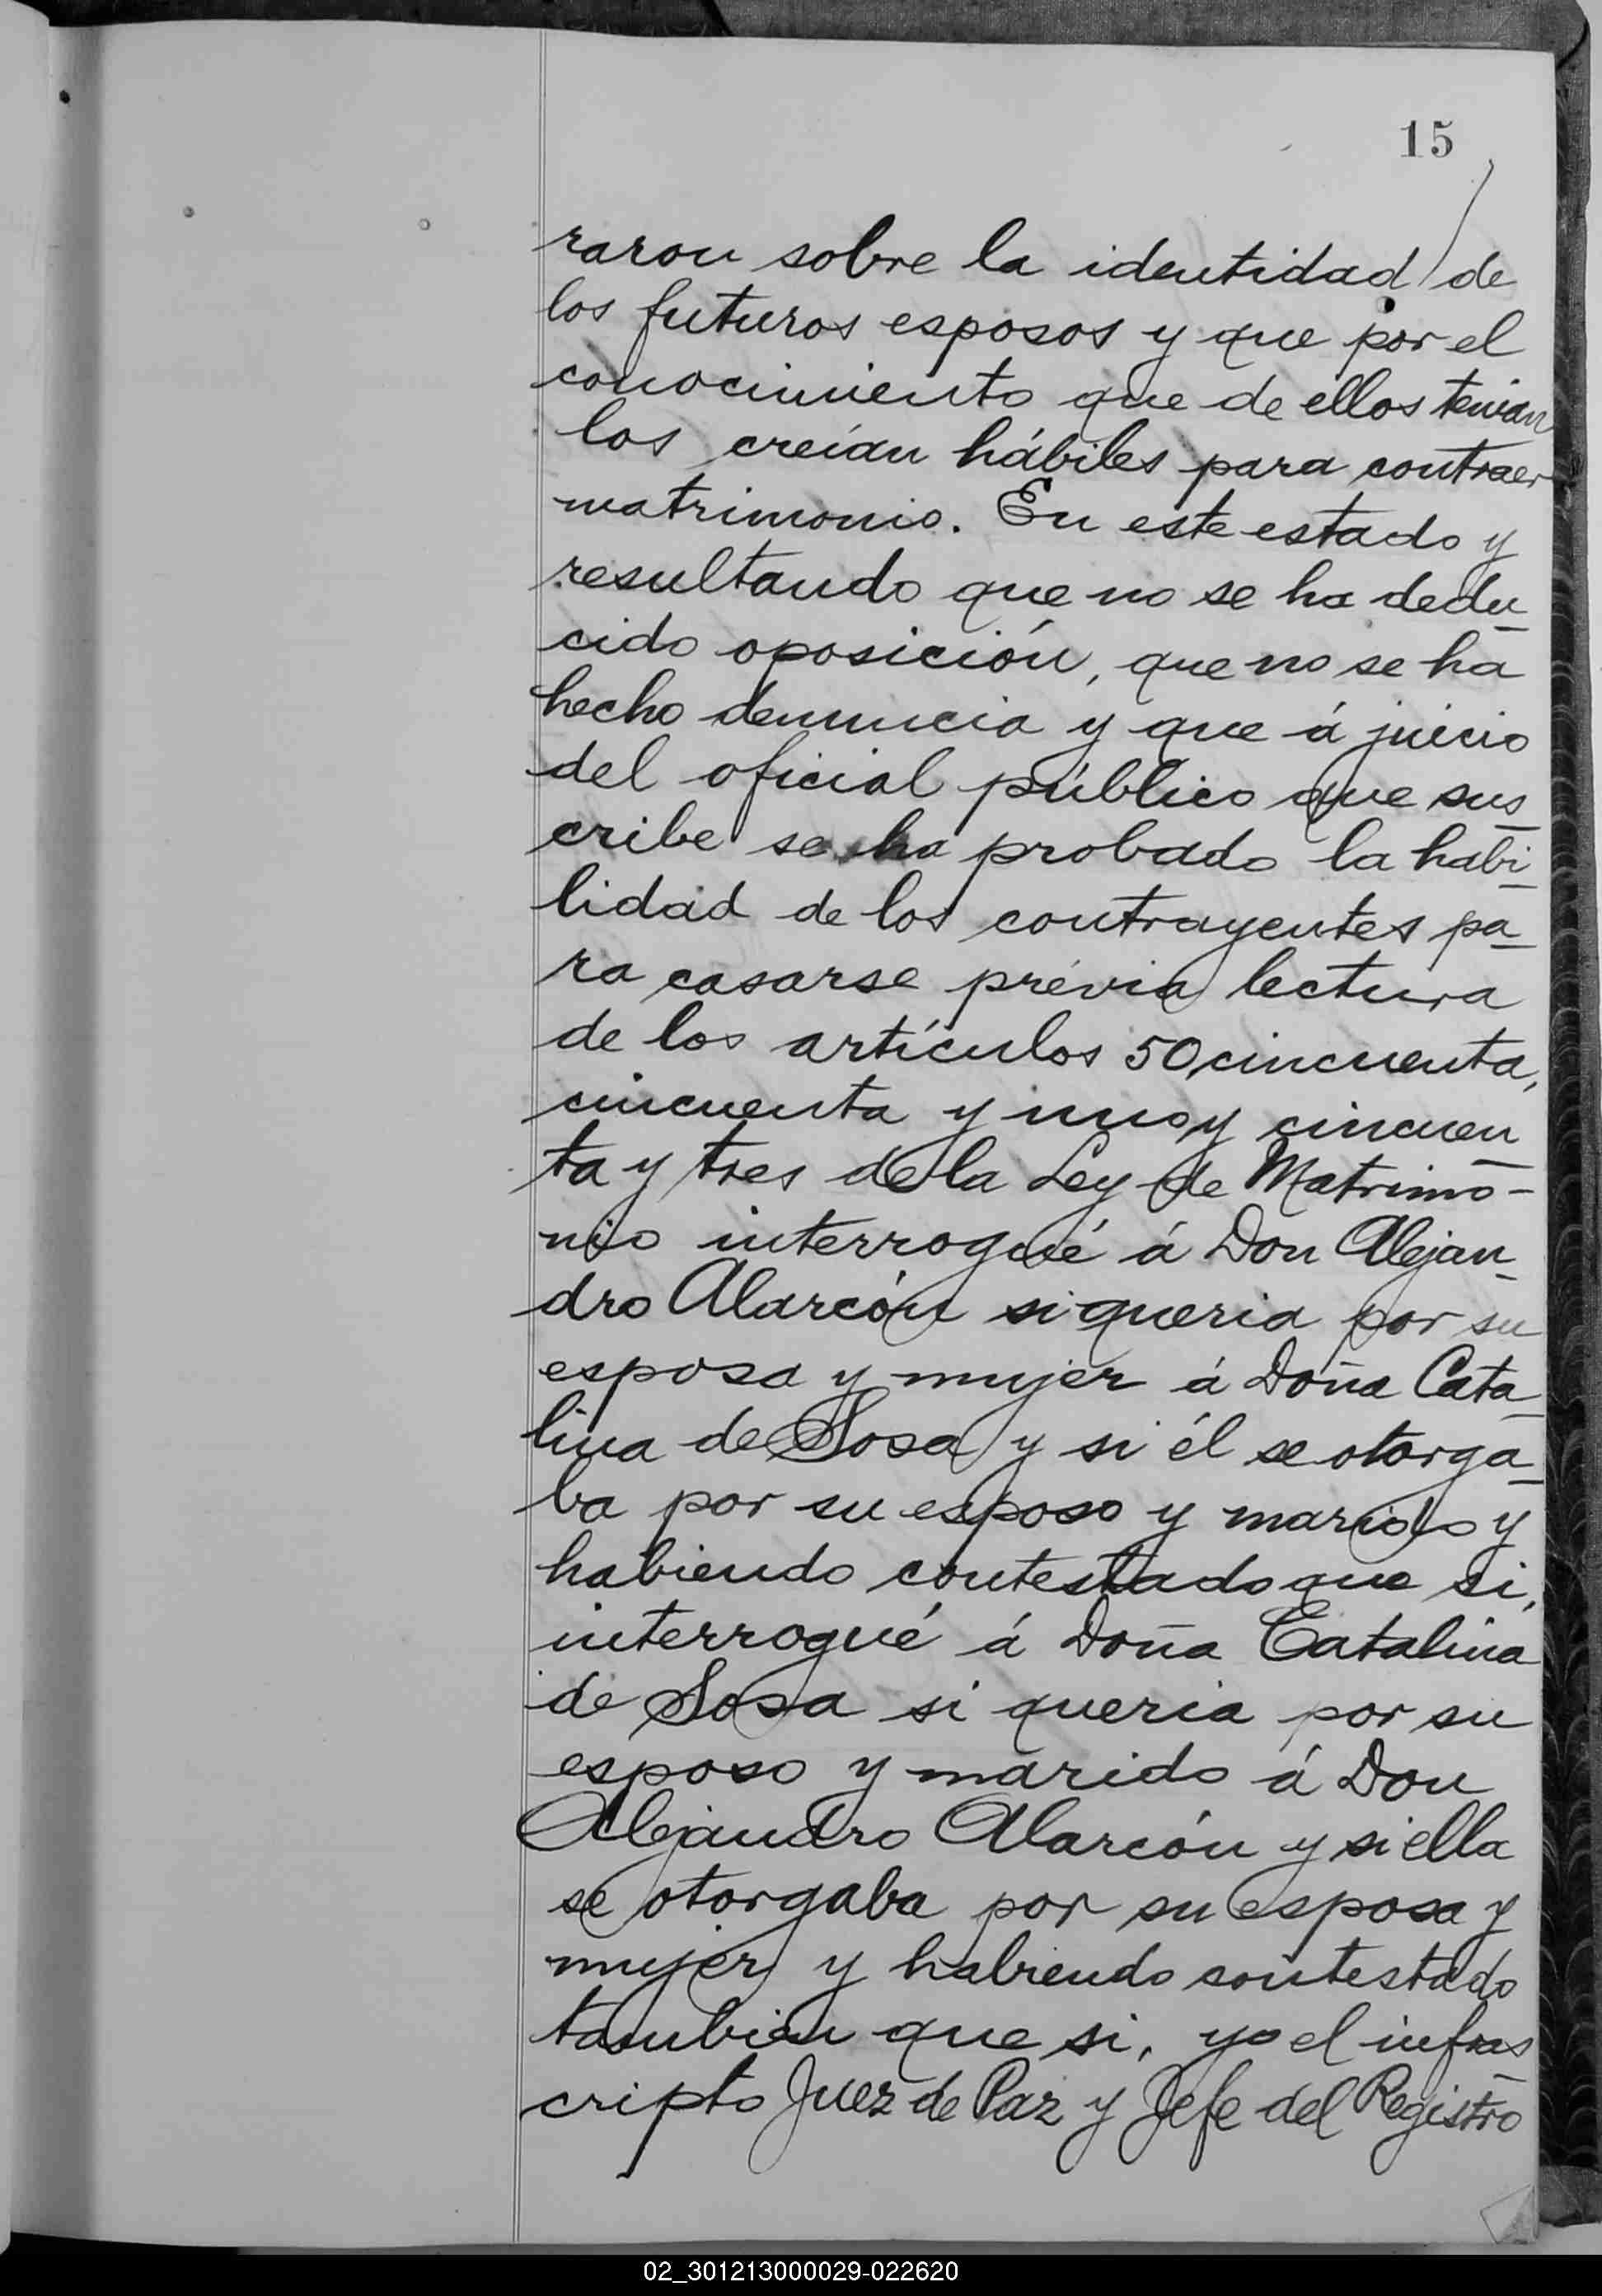 15
raron sobre la identidad de
los futuros esposos y que por el
conocimiento que de ellos tenian
los creían hábiles para contraer
matrimonio. En este estado y
resultando que no se ha dedu-
cido oposición, que no se ha
hecho denuncia y que á juicio
del oficial público que sus-
cribe se ha probado la habi-
lidad de los contrayentes pa-
ra casarse prévia lectura
de los artículos 50 cincuenta,
cincuenta y uno y cincuen-
ta y tres de la Ley de Matrimo-
nio interrogué á Don Alejan-
dro Alarcón si queria por su
esposa y mujer á Doña Cata-
lina de Sosa y si él se otorga-
ba por su esposo y marido y
habiendo contestado que si,
interrogué á Doña Catalina
de Sosa si queria por su
esposo y marido á Don
Alejandro Alarcón y si ella
se otorgaba por su esposa y
mujer y habiendo contestado
tambien que si, yo el infras-
cripto Juez de Paz y Jefe del Registro
02_301213000029-022620